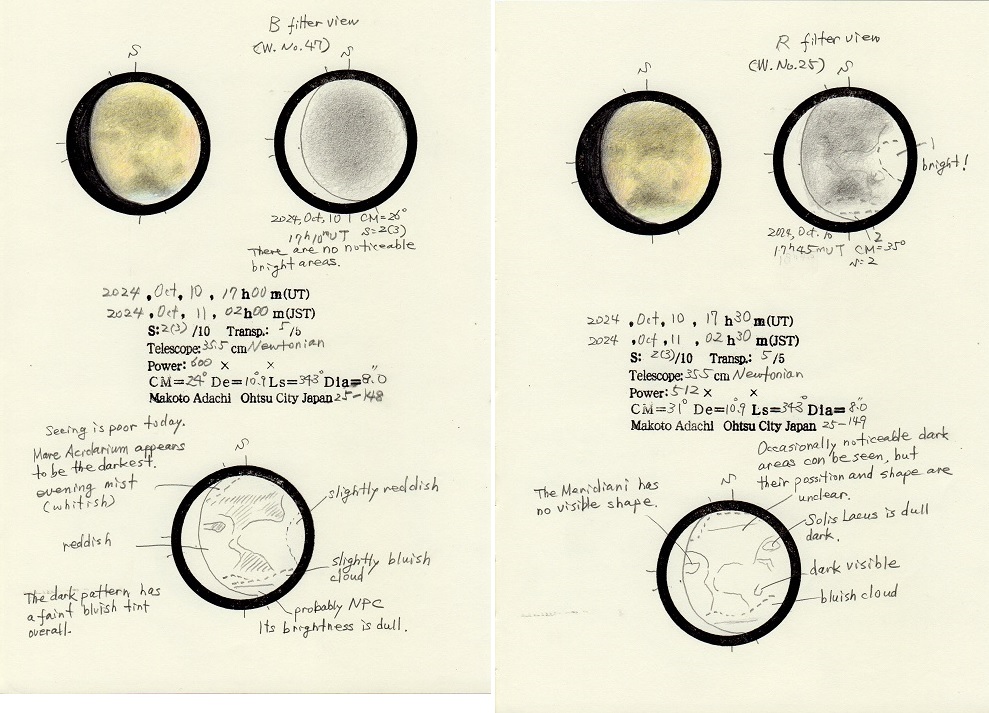 B filter view
(W. No. 47)
S
S
2024, Oct, 10
CM=26°
17h10mUT
S=2(3)
There are no noticeable
bright areas.
2024, Oct, 10, 17h00m(UT)
2024, Oct, 11, 02h00m(JST)
S: 2(3)/10 Transp.: 5/5
Telescope: 35.5 cm Newtonian
Power: 600 × ×
CM=24° De=10.9 Ls=343° Dia=8.″0
Makoto Adachi Ohtsu City Japan 25-148
Seeing is poor today.
Mare Acidarium appears
to be the darkest.
evening mist
(whitish)
S
slightly reddish
reddish
slightly bluish
cloud
The dark pattern has
a faint bluish tint
overall.
probably NPC
Its brightness is dull.
R filter view
(W. No. 25)
S
S
bright!
2024, Oct. 10
2
17h45mUT CM=35°
S=2
2024, Oct, 10, 17h30m(UT)
2024, Oct, 11, 02h30m(JST)
S: 2(3)/10 Transp.: 5/5
Telescope: 35.5 cm Newtonian
Power: 512 × ×
CM=31° De=10.9 Ls=343° Dia=8.″0
Makoto Adachi Ohtsu City Japan 25-149
Occasionally noticeable dark
areas can be seen, but
their possition and shape are
unclear.
The Meridiani has
no visible shape.
S
Solis Lacus is dull
dark.
dark visible
bluish cloud